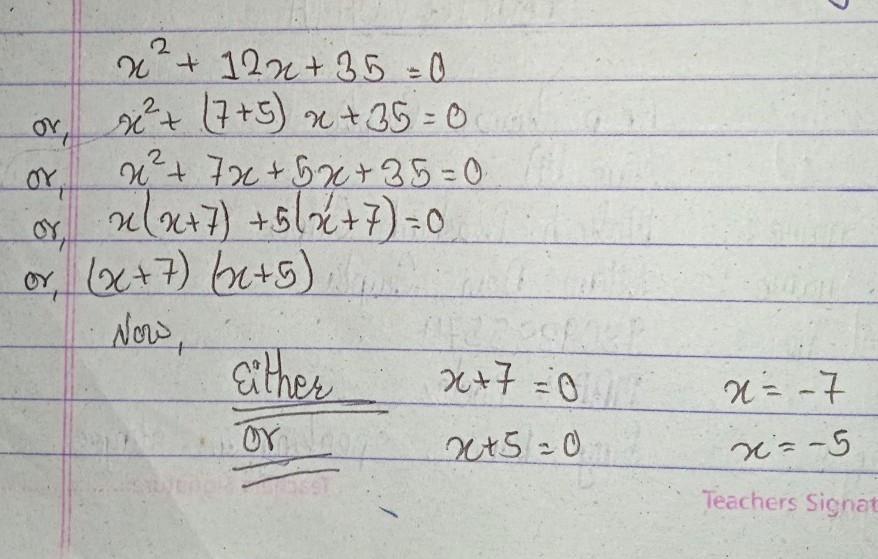 x² + 12x + 35 = 0
or, x² + (7+5) x + 35 = 0
or, x² + 7x + 5x + 35 = 0
or, x(x+7) + 5(x+7) = 0
or, (x+7) (x+5)
Now,
Either x+7 = 0 x = -7
or x+5 = 0 x = -5
Teachers Signat